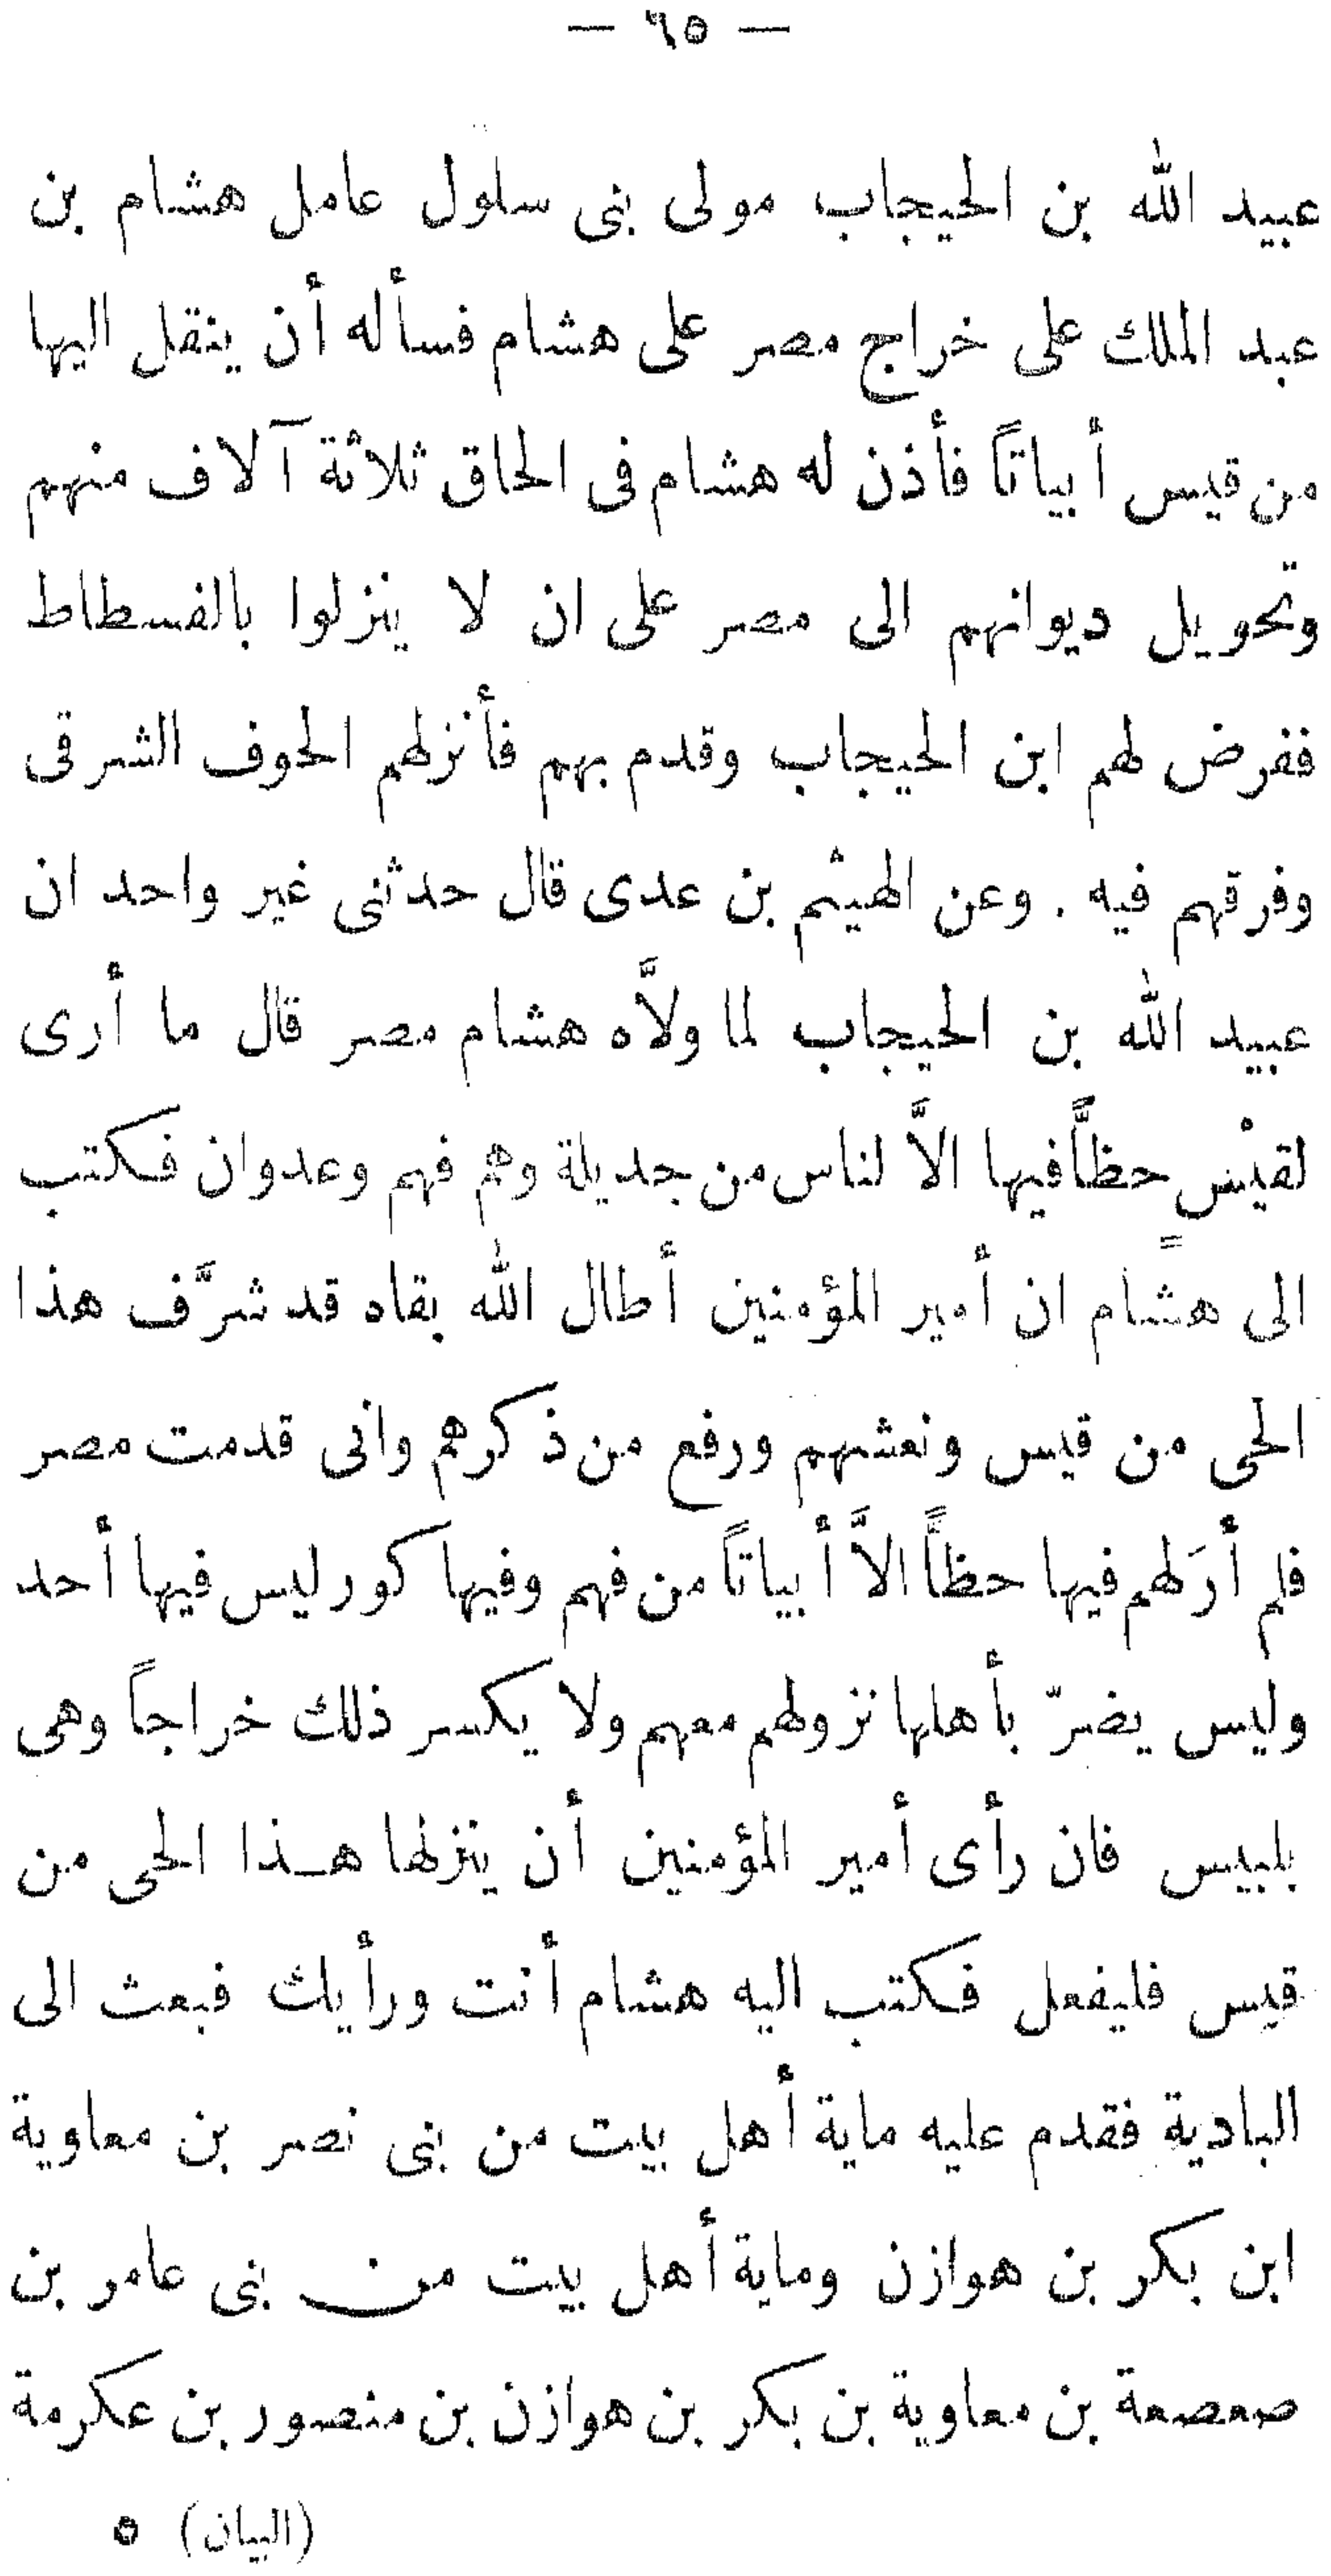 — ٦٥ —
عبيد الله بن الحيجاب مولى بنى سلول عامل هشام بن
عبد الملك على خراج مصر على هشام فسأله أن ينقل اليها
من قيس أبياتاً فأذن له هشام فى الحاق ثلاثة آلاف منهم
وتحويل ديوانهم الى مصر على ان لا ينزلوا بالفسطاط
ففرض لهم ابن الحيجاب وقدم بهم فأنزلهم الحوف الشرقى
وفرقهم فيه . وعن الهيثم بن عدى قال حدثنى غير واحد ان
عبيد الله بن الحيجاب لما ولاَّه هشام مصر قال ما أرى
لقيْس حظاًّ فيها الاَّ لناس من جديلة وهم فهم وعدوان فكتب
الى هشام ان أمير المؤمنين أطال الله بقاه قد شرَّف هذا
الحى من قيس ونعشهم ورفع من ذكرهم وانى قدمت مصر
فلم أرَ لهم فيها حظاً الاَّ أبياتاً من فهم وفيها كور ليس فيها أحد
وليس يضرّ بأهلها نزولهم معهم ولا يكسر ذلك خراجاً وهى
بلبيس فان رأى أمير المؤمنين أن ينزلها هـذا الحى من
قيس فليفعل فكتب اليه هشام أنت ورأيك فبعث الى
البادية فقدم عليه ماية أهل بيت من بنى نصر بن معاوية
ابن بكر بن هوازن وماية أهل بيت من بنى عامر بن
صعصعة بن معاوية بن بكر بن هوازن بن منصور بن عكرمة
(البيان) ٥